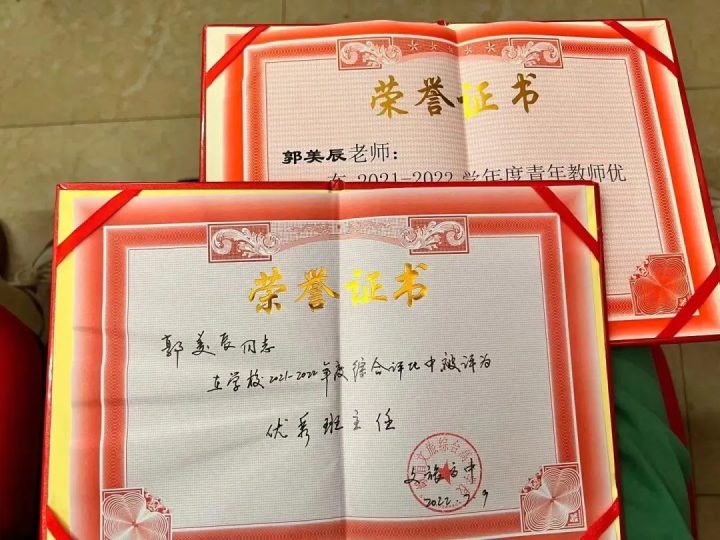 荣誉证书
郭美辰老师：
在 2021-2022 学年度青年教师优
荣誉证书
郭美辰同志
在学校2021-2022年度综合评比中被评为
优秀班主任
文旅高中
2022.7.9